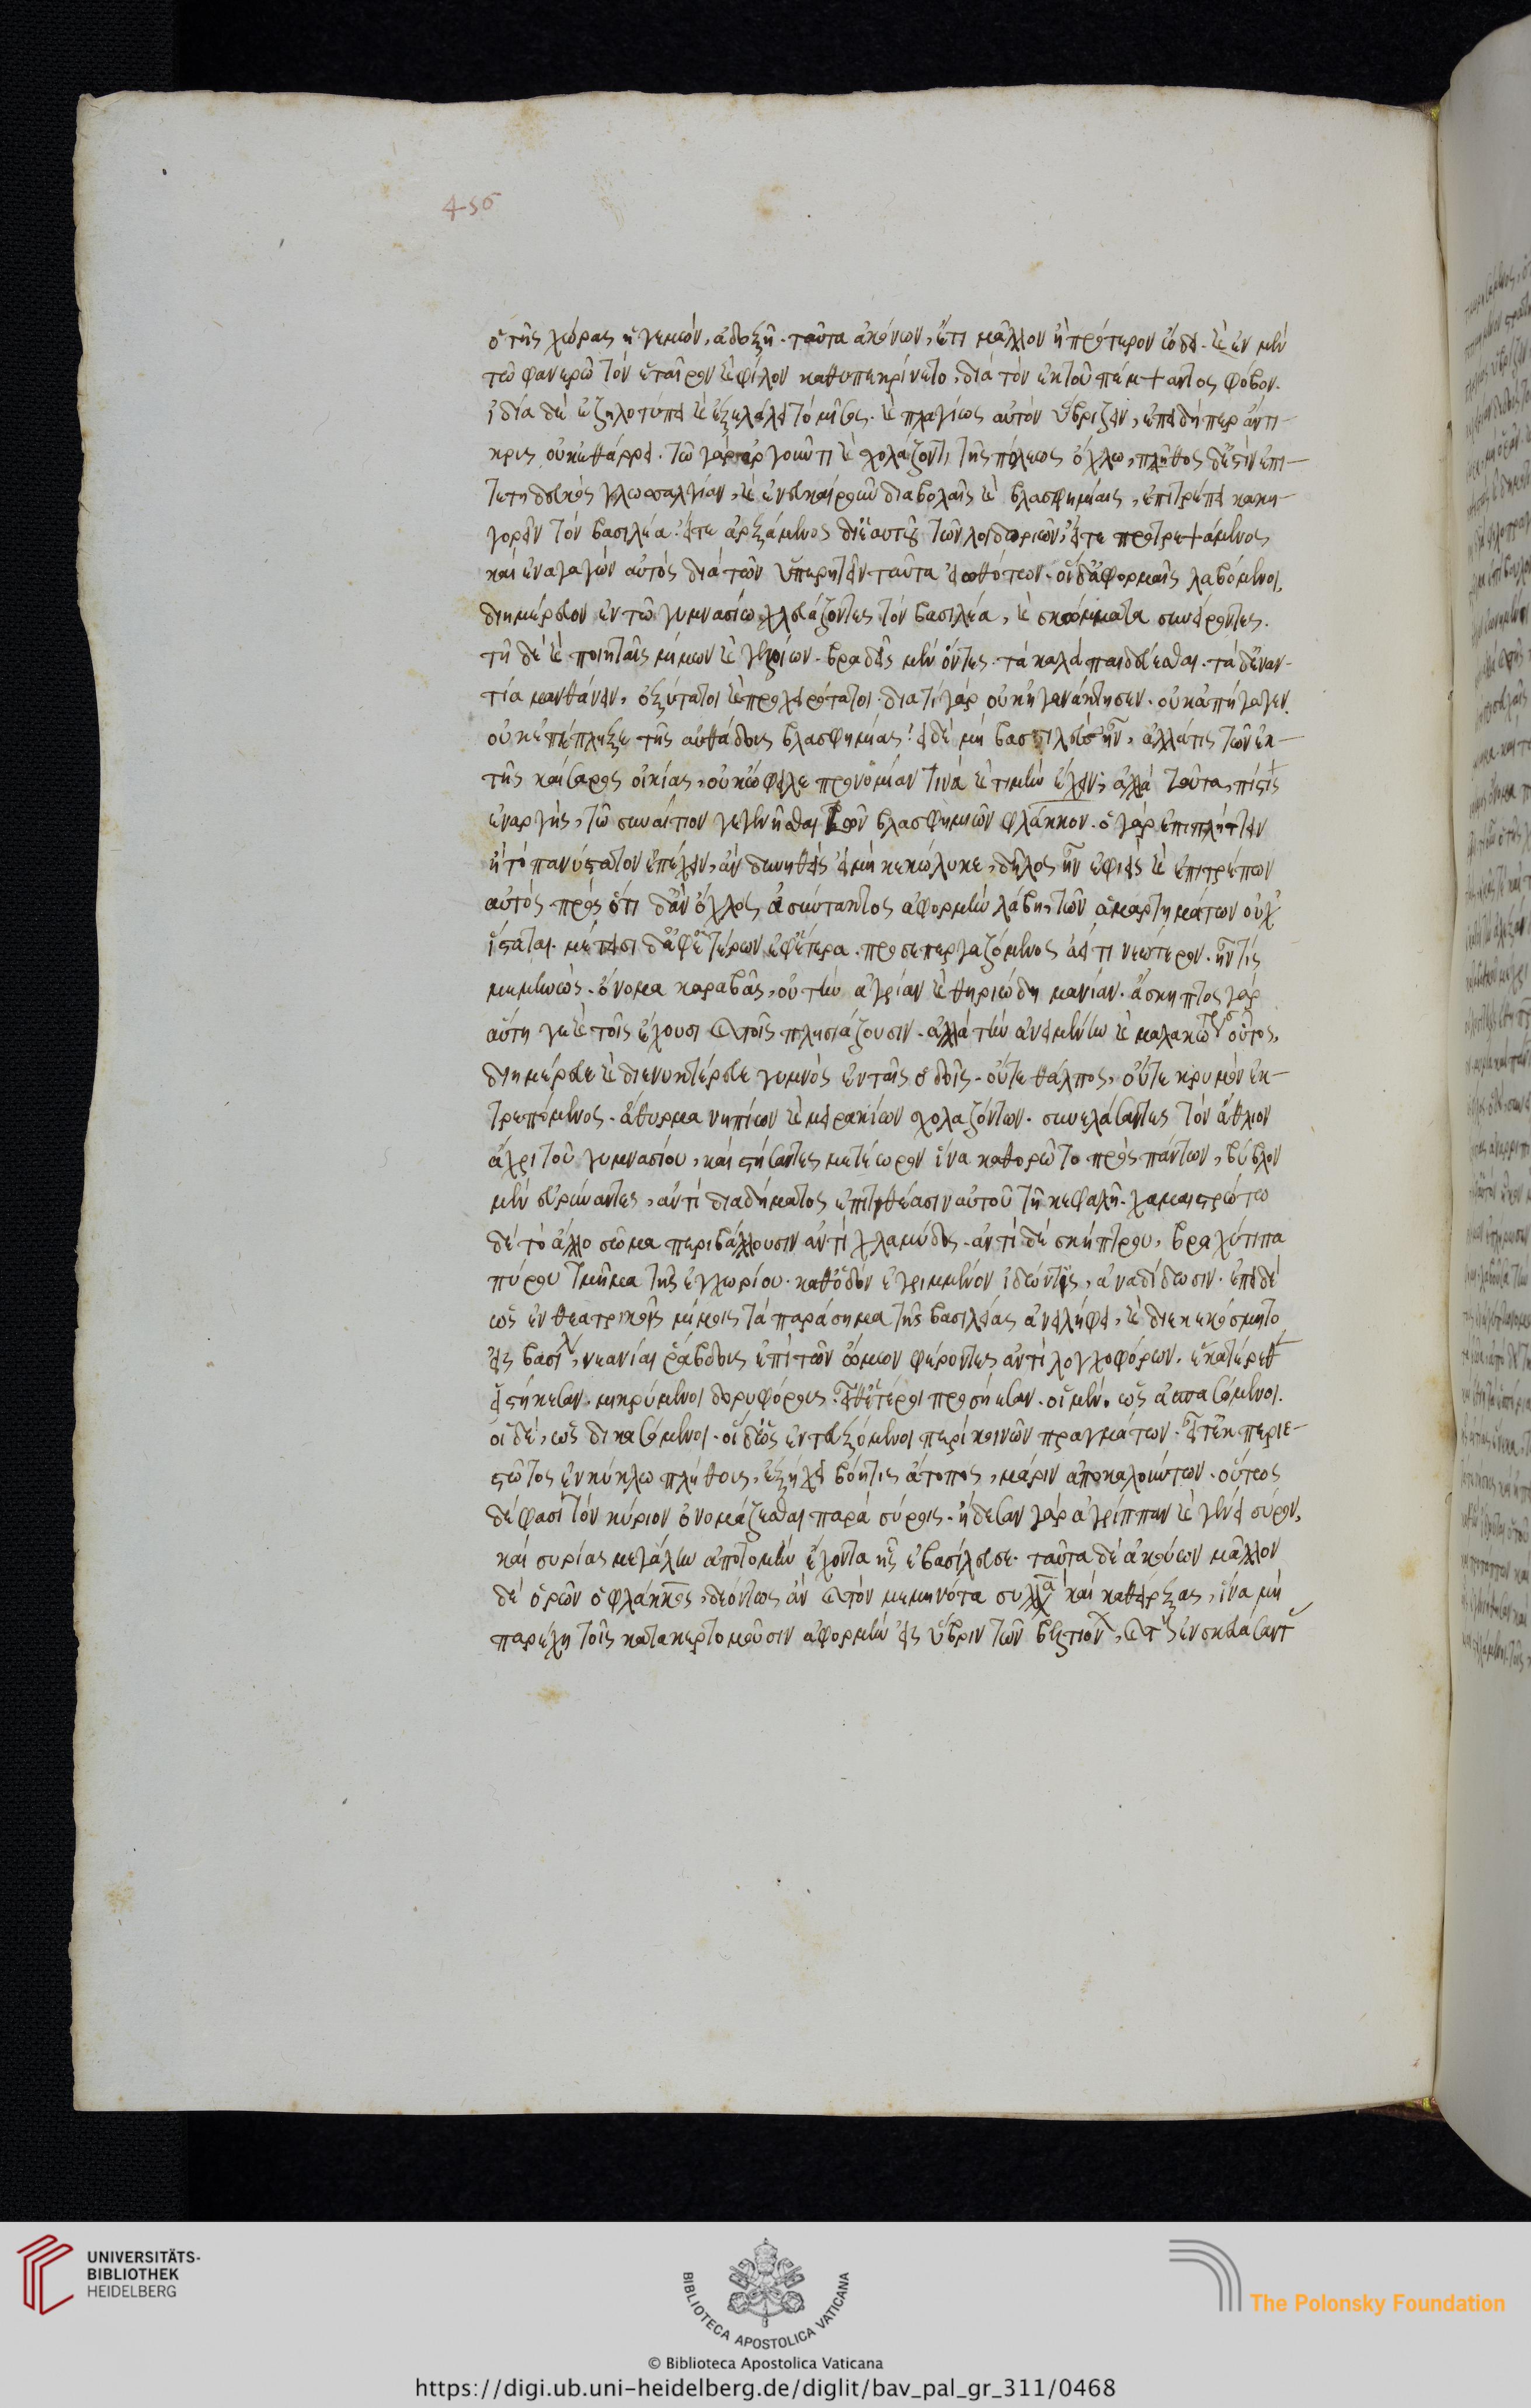 456
ὁ τῆς χώρας ἡγεμὼν, ἀδοξῇ. ταῦτα ἀκούων, ἔτι μᾶλλον ἢ πρότερον ᾤδει. καὶ ἐν μὲν
τῶ φανερῶ τὸν ἑταῖρον καὶ φίλον καθυπεκρίνετο, διὰ τὸν ἐκ τοῦ πέμψαντος φόβον.
ἰδία δὲ ἐζηλοτύπει καὶ ἐξελάλει τὸ μῖσος. καὶ πλαγίως αὐτὸν ὕβριζεν, ἐπειδήπερ ἄντι-
κρις οὐκ ἐθάρρει. τῶ γὰρ ἀργοῦντι καὶ σχολάζοντι τῆς πόλεως ὄχλω, πλῆθος δ' ἐστὶν ἐπι-
τετηδευκὸς γλωσσαλγίαν, καὶ ἐνευκαιροῦν διαβολαῖς καὶ βλασφημίαις, ἐπιτρέπει κακη-
γορεῖν τὸν βασιλέα. εἴτε ἀρξάμενος δι' ἑαυτοῦ τῶν λοιδοριῶν, εἴτε προτρεψάμενος
καὶ ἐναγαγὼν αὐτὸς διὰ τῶν ὑπηρετεῖν ταῦτα εἰωθότων. οἱ δ' ἀφορμαῖς λαβόμενοι,
διημέρευον ἐν τῶ γυμνασίω χλευάζοντες τὸν βασιλέα, καὶ σκώμματα συνείροντες.
τῆ δὲ καὶ ποιηταῖς μίμων καὶ γελοίων. βραδεῖς μὲν ὄντες τὰ καλὰ παιδεύεσθαι. τὰ δ' ἐναν-
τία μανθάνειν, ὀξύτατοι καὶ προχειρότατοι. διατί γὰρ οὐκ ἠγανάκτησεν. οὐκ ἀπήγαγεν.
οὐκ ἐπέπληξε τῆς αὐθάδους βλασφημίας; εἰ δὲ μὴ βασιλεὺς ἦν, ἀλλά τις τῶν ἐκ
τῆς καίσαρος οἰκίας, οὐκ ὤφειλε προνομίαν τινὰ καὶ τιμὴν ἔχειν; ἀλλὰ ταῦτα, πίστις
ἐναργὴς, τῶ συναίτιον γεγενῆσθαι τῶν βλασφημιῶν φλάκκον. ὁ γὰρ ἐπιπλήττειν
ἢ τὸ πανύστατον ἐπέχειν, ἂν δυνηθεὶς εἰ μὴ κεκώλυκε, δῆλος ἦν ἐφιεὶς καὶ ἐπιτρέπων
αὐτὸς. πρὸς ὅτι δ' ἂν ὄχλος ἀσύντακτος ἀφορμὴν λάβη, τῶν ἁμαρτημάτων οὐχ
ἵσταται. μέτεισι δ' ἀφ' ἑτέρων ἐφ' ἕτερα. προσεπεργαζόμενος ἀεί τι νεώτερον. ἦν τίς
μεμηνὼς. ὄνομα καραβᾶς, οὐ τὴν ἀγρίαν καὶ θηριώδη μανίαν. ἄσκηπτος γὰρ
αὕτη γε καὶ τοῖς ἔχουσι καὶ τοῖς πλησιάζουσιν. ἀλλὰ τὴν ἀνειμένην καὶ μαλακωτέρ οὗτος,
διημέρευε καὶ διενυκτέρευε γυμνὸς ἐν ταῖς ὁδοῖς. οὔτε θάλπος, οὔτε κρυμὸν ἐκ-
τρεπόμενος. ἄθυρμα νηπίων καὶ μειρακίων σχολαζόντων. συνελάσαντες τὸν ἄθλιον
ἄχρι τοῦ γυμνασίου, καὶ στήσαντες μετέωρον ἵνα καθορῶτο πρὸς πάντων, βύβλον
μὲν εὐρύναντες, ἀντὶ διαδήματος ἐπιτιθέασιν αὐτοῦ τῆ κεφαλῆ. χαμαιστρώτω
δὲ τὸ ἄλλο σῶμα περιβάλλουσιν ἀντὶ χλαμύδος. ἀντὶ δὲ σκήπτρου, βραχύ τι πα
πύρου τμῆμα τῆς ἐγχωρίου. καθ' ὁδὸν ἐρριμμένον ἰδόντες, ἀναδίδωσιν. ἐπεὶ δὲ
ὡς ἐν θεατρικοῖς μίμοις τὰ παράσημα τῆς βασιλείας ἀνειλήφει, καὶ διεκεκόσμητο
εἰς βασιλ, νεανίαι ῥάβδους ἐπὶ τῶν ὤμων φέροντες ἀντὶ λογχοφόρων. ἑκατέρωθ
εἱστήκεσαν, μιμούμενοι δορυφόρους. εἶθ' ἕτεροι προσήεσαν. οἱ μὲν. ὡς ἀσπασόμενοι.
οἱ δὲ, ὡς δικασόμενοι. οἱ δ' ὡς ἐντευξόμενοι περὶ κοινῶν πραγμάτων. εἶτ' ἐκ περιε-
στῶτος ἐν κύκλω πλήθους, ἐξήχει βοή τις ἄτοπος, μάριν ἀποκαλούντων. οὕτως
δὲ φασὶ τὸν κύριον ὀνομάζεσθαι παρὰ σύροις. ἤδεσαν γὰρ ἀγρίππαν καὶ γένει σύρον,
καὶ συρίας μεγάλην ἀποτομὴν ἔχοντα ἧς ἐβασίλευσε. ταῦτα δὲ ἀκούων μᾶλλον
δὲ ὁρῶν ὁ φλάκκος, δεόντως ἂν καὶ τὸν μεμηνότα συλλα καὶ καθείρξας, ἵνα μὴ
παρέχη τοῖς κατακερτομοῦσιν ἀφορμὴν εἰς ὕβριν τῶν βελτιόν, καὶ τ ἐνσκευάσαντ
UNIVERSITÄTS-
BIBLIOTHEK
HEIDELBERG
BIBLIOTECA APOSTOLICA VATICANA
The Polonsky Foundation
© Biblioteca Apostolica Vaticana
https://digi.ub.uni-heidelberg.de/diglit/bav_pal_gr_311/0468